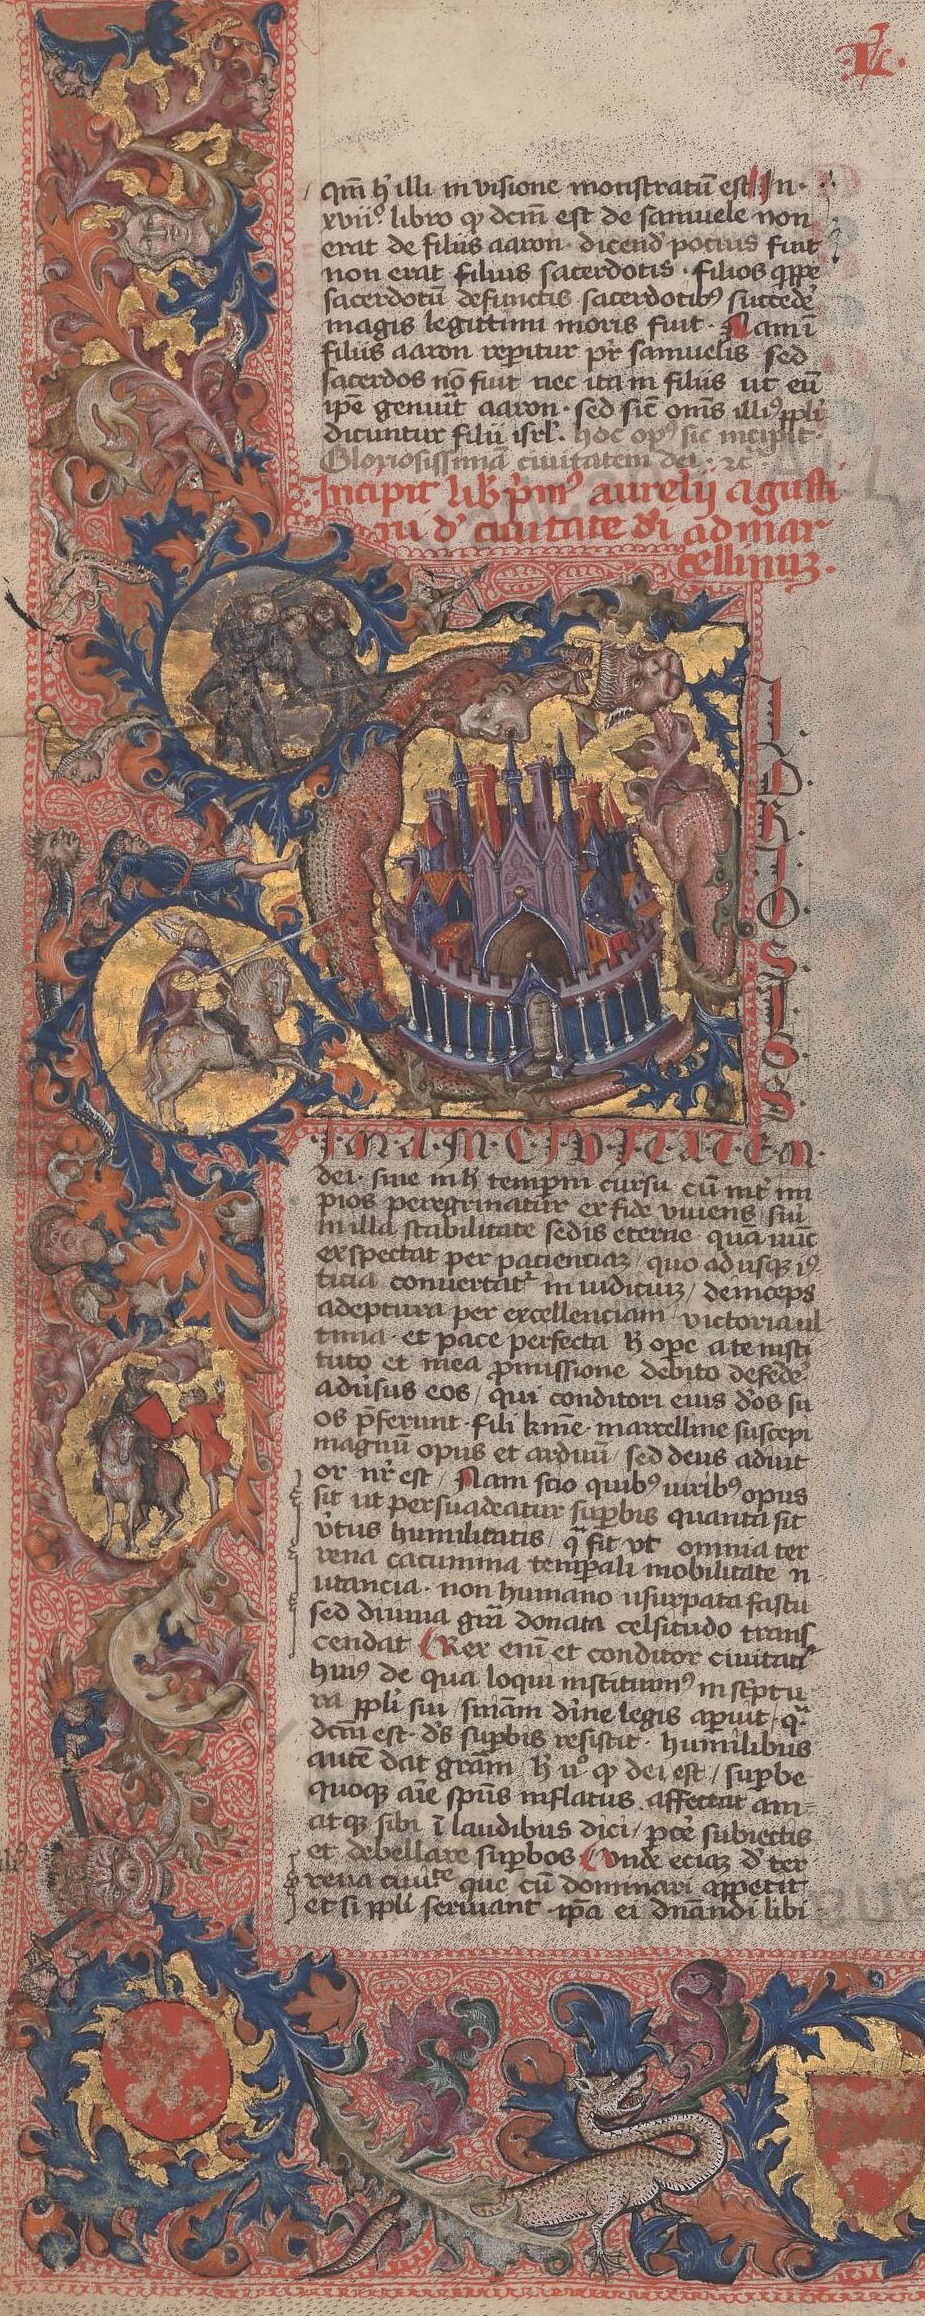 L
qm̄ h' illi in visione monstratū est In
xviiº libro qꝫ dcm̄ est de samuele non
erat de filiis aaron · dicend' pocius fuit
non erat filius sacerdotis · filios qppe
sacerdotū defunctis sacerdotibꝰ succede'
magis legittimi moris fuit · Nam ī
filiis aaron reperitur pr̄ samuelis sed
sacerdos nō fuit nec ita in filiis ut eū
ip̄e genuīt aaron · sed sic̄ om̄s illiꝰ ppl̄i
dicuntur filii isrl̄ · hoc opꝰ sic incipit ·
Gloriosissimā ciuitatem dei · ⁊c̄
Incipit lib' pmꝰ aurelij agusti
ni d' ciuitate di ad mar
cellinuꝫ ·
L
O
R
I
O
S
I
S
S
I·M·A·M·C·I·V·I·T·A·T·E·M
dei · siue in h̄ temporū cursu cū int' im
pios peregrinatur ex fide viuens siue
in illa stabilitate sedis eterne quā nūc
exspectat per pacienciaꝫ quo adusqꝫ iꝰ
ticia conuertat' in iudiciuꝫ / deinceps
adeptura per excellenciam victoria ul
tima · et pace perfecta h̄ ope a te insti
tuto et mea pmissione debito defēde'
adu'sus eos / qui conditori eius d'os su
os p̄ferunt · fili km̄e · marcelline suscepi
magnū opus et arduū / sed deus adiut
or nr̄ est / Nam scio quibꝰ uiribꝰ opus
sit ut persuadeatur supbis quanta sit
v'tus humilitatis / qͣ fit vt omnia ter
rena cacumina temp̄ali mobilitate n
utancia · non humano usurpata fastu
sed diuina grā donata celsitudo trans
cendat Rex eni᷑ et conditor ciuitatis
huiꝰ de qua loqui instituimꝰ in scptu
ra ppl̄i sui / sniam d'ine legis aperuit / qͣ
dcm̄ est · d's supbis resistit · humilibus
autē dat grām h̄ uº qꝫ dei est / supbe
quoqꝫ aīe sp̄us inflatus affectat am
atqꝫ sibi ī laudibus dici / pce' subiectis
et debellare supbos Vnde eciaꝫ d' ter
rena ciuite que cū dominari appetit
et si ppl̄i seruiant · ip̄a ei dn̄andi libi